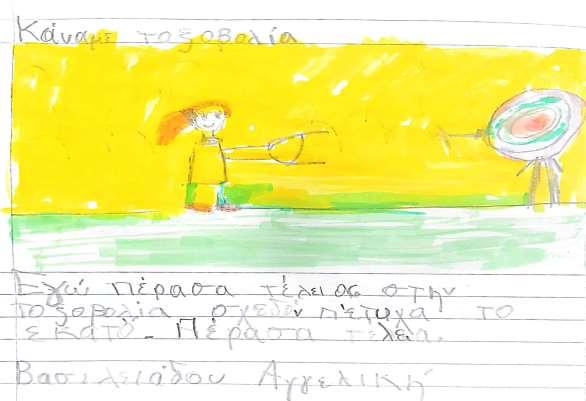 Κάναμε τοξοβολία
Εγώ πέρασα τέλειας στην
τοξοβολία σχεδόν πέτυχα το
εκατό. Πέρασα τέλεια.
Βασιλειάδου Αγγελική